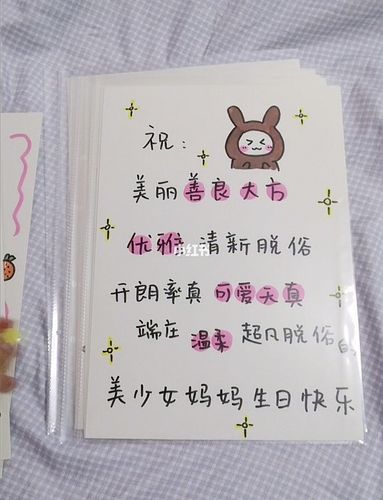 祝：
美丽善良大方
优雅清新脱俗
小红书
开朗率真可爱天真
端庄温柔超凡脱俗的
美少女妈妈生日快乐